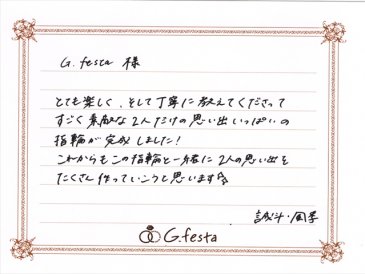 G.festa 様
とても楽しく、そして丁寧に教えてくださって
すごく素敵な2人だけの思い出いっぱいの
指輪が完成しました!
これからもこの指輪と一緒に2人の思い出を
たくさん作っていこうと思います
G.festa